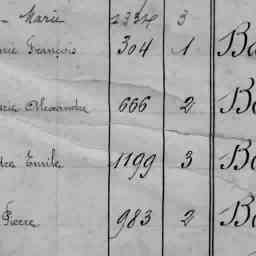 Marie 2334 3
rie François 304 1 Ba
rie Alexandre 666 2 Ba
dre Emile 1199 3 Ba
Pierre 983 2 Ba